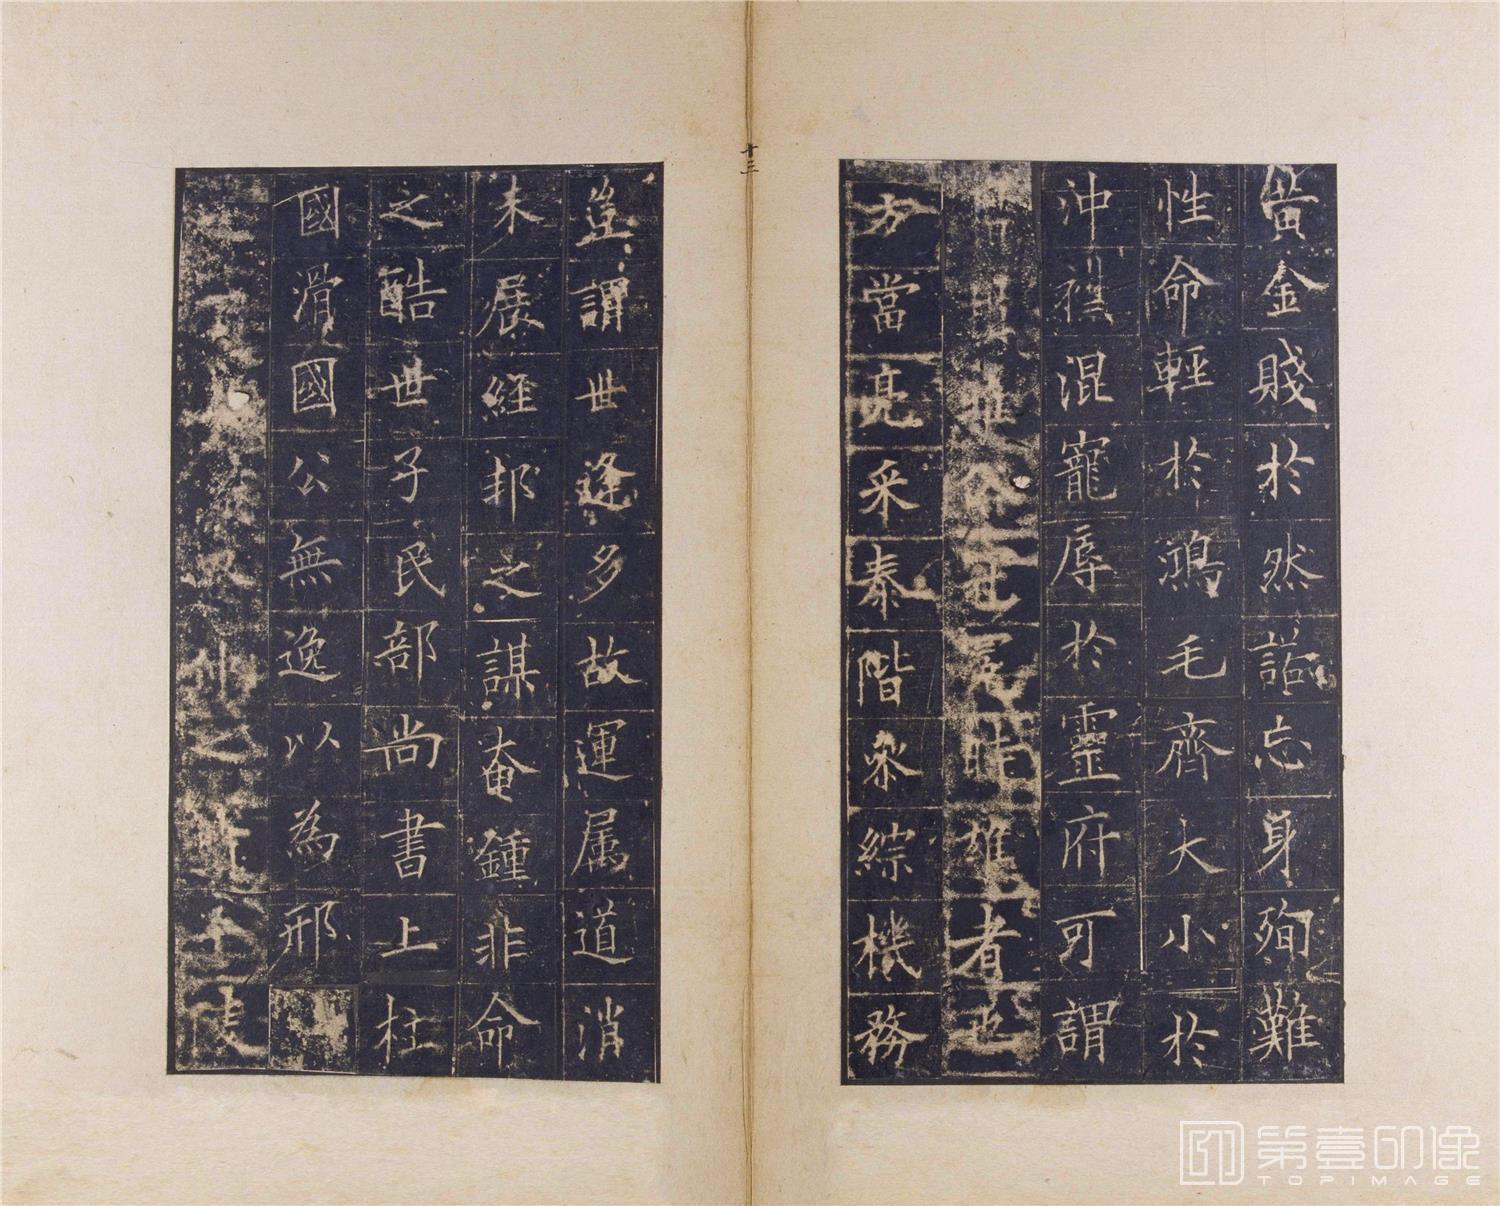 黃金賤於然諾忘身殉難
性命輕於鴻毛齊大小於
沖襟混寵辱於靈府可謂
雅俗冠冕時雄者也
方當亮采泰階叅綜機務
豈謂世逢多故運属道消
未展經邦之謀奄鍾非命
之酷世子民部尚書上柱
國滑國公無逸以為邢
十三
第壹印像
TOPIMAGE